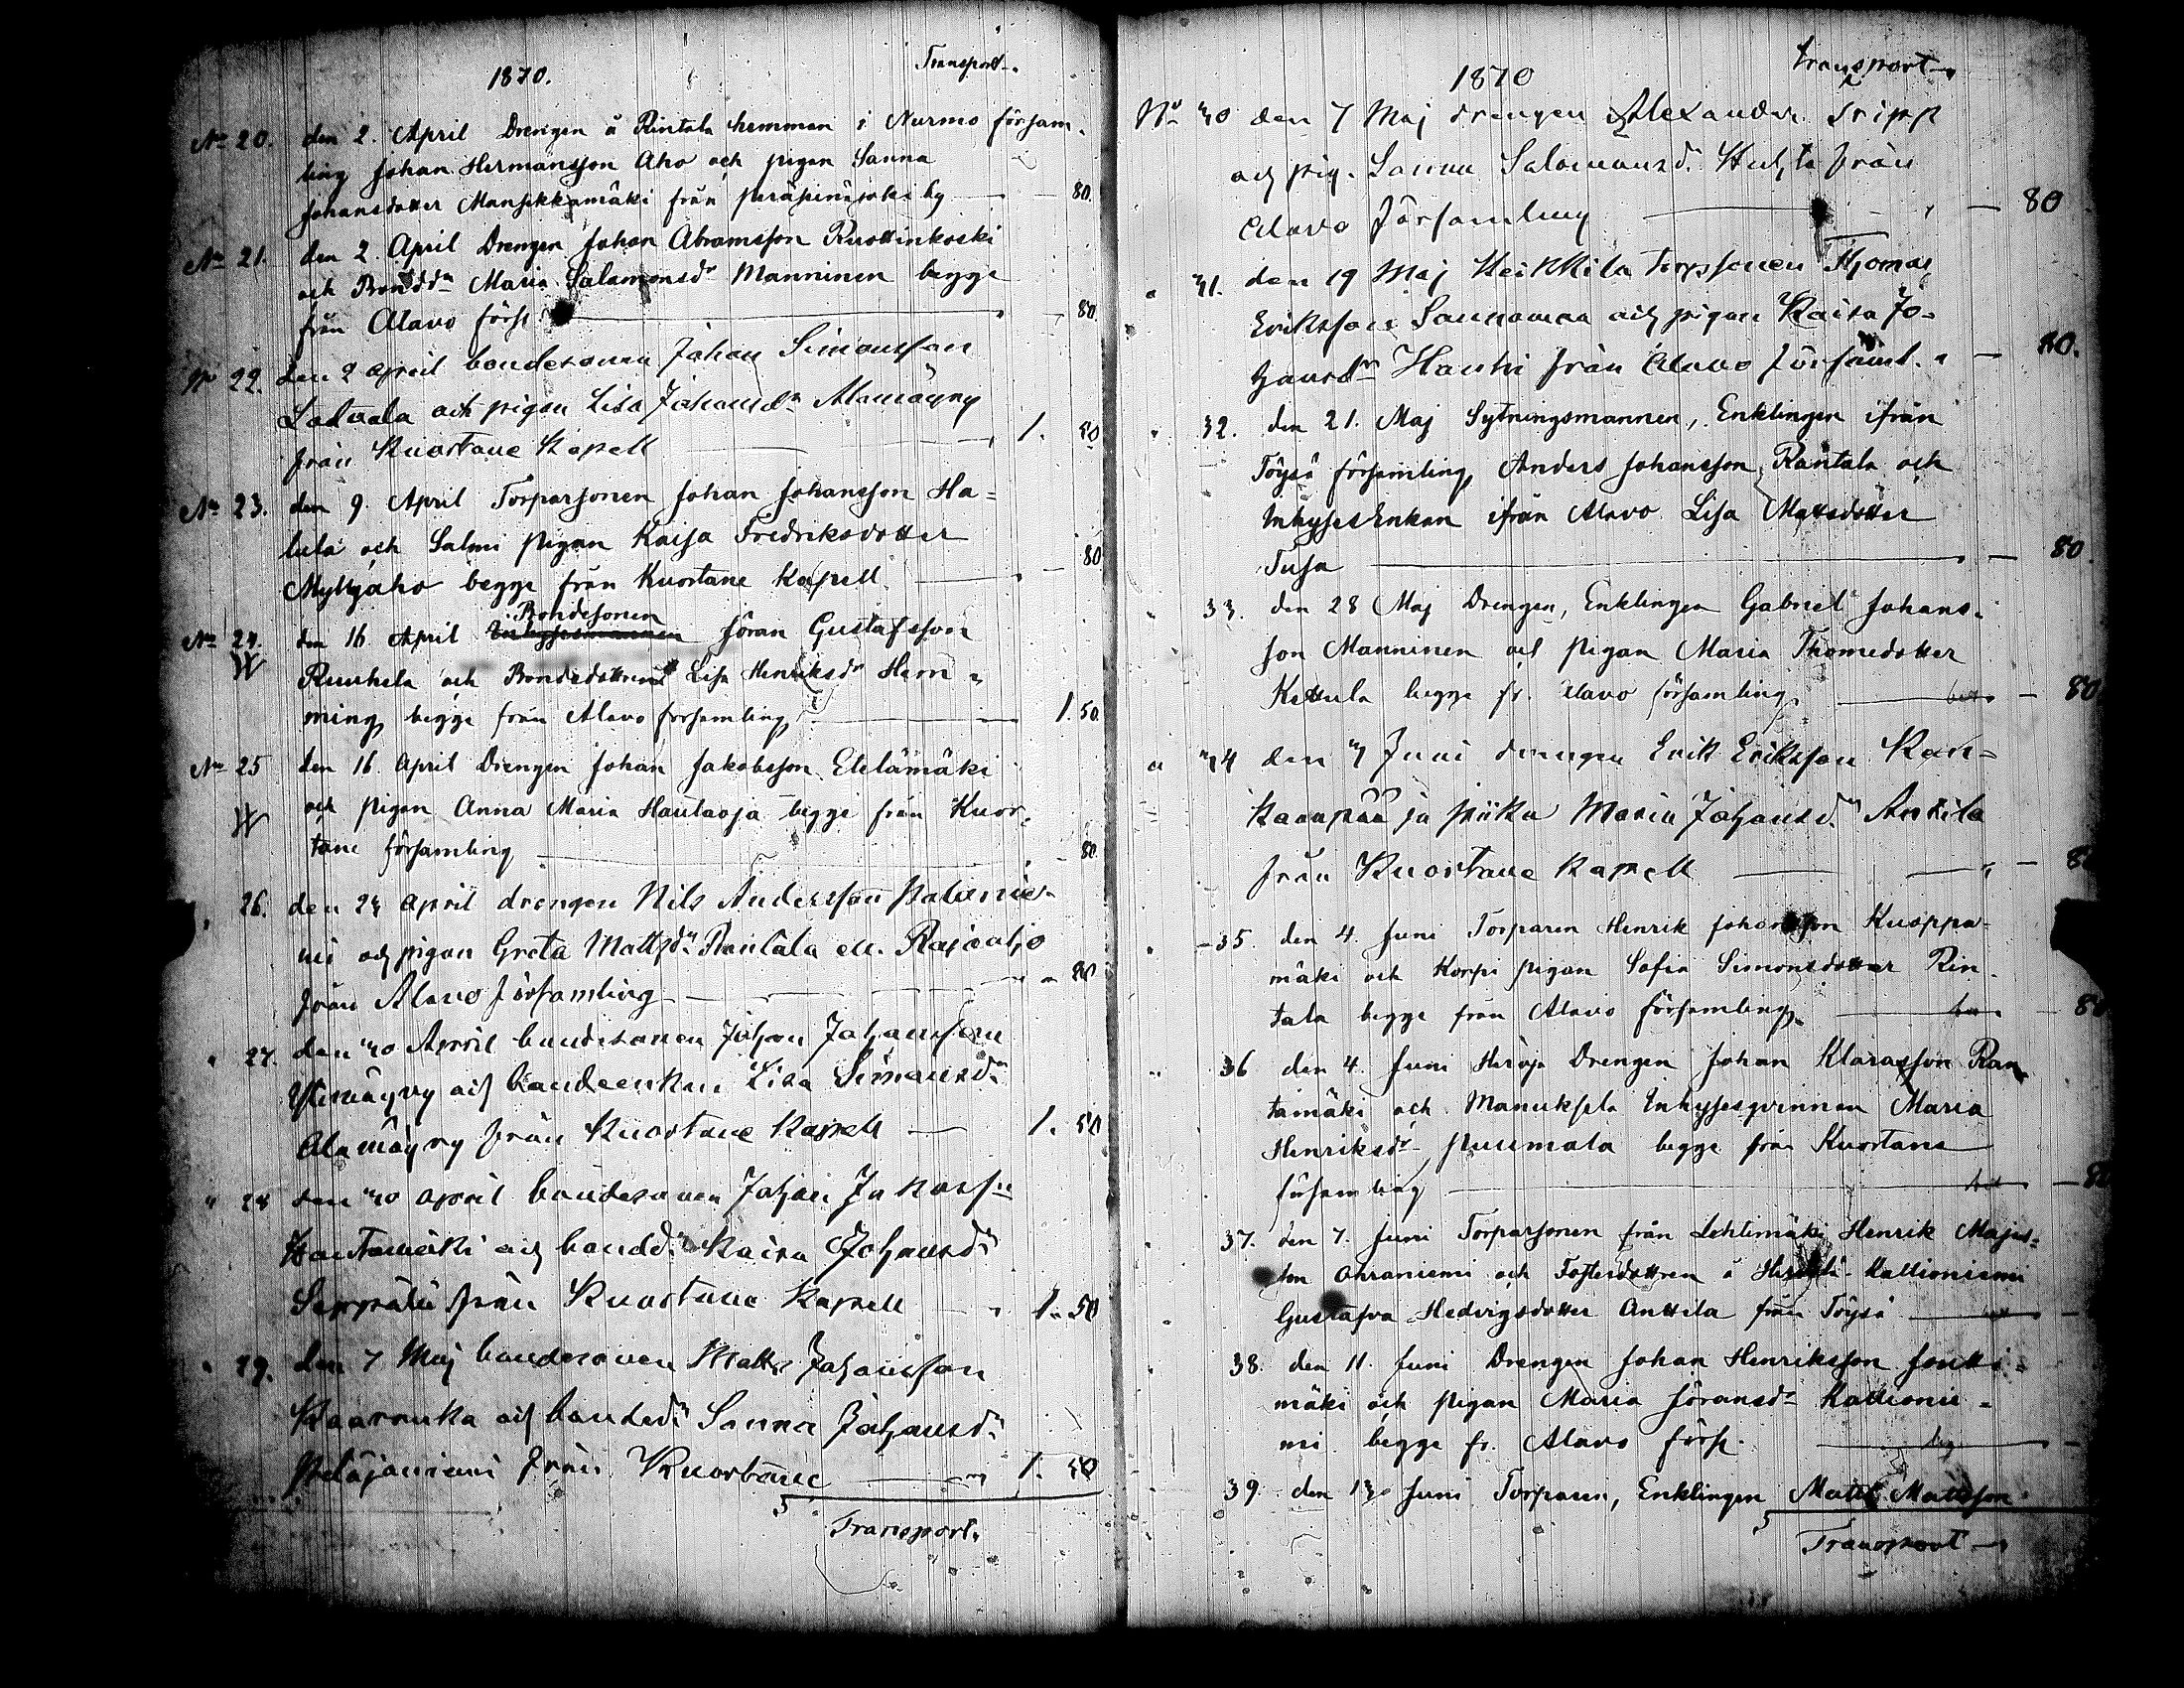 1870. Transport.
No 20. den 2. April Drengen å Rintala hemman i Nurmo försam-
ling Johan Hermansson Aho och pigan Sanna
Johansdotter Mansikkamäki från Peräseinäjoki by — 80.
No 21. den 2. April Drengen Johan Abramsson Ruottinkoski
och Bondd:n Maria Salamonsd:r Manninen begge
från Alavo förs. — 80
No 22. den 2 april bondesonen Johan Simonsson
Ladvala och pigan Lisa Johansd:r Alamäyry
från Kuortane Kapell 1. 50
No 23. den 9. April Torparsonen Johan Johansson Ha=
lula och Salmi pigan Kaisa Fredriksdotter
Myllyaho begge från Kuortane Kapell — 80
Bondesonen
No 24. den 16 April Inhysesmannen Jöran Gustafsson
Ruuhela och Bondedottren Lisa Henriksd:r Hem=
ming begge från Alavo församling 1. 50.
No 25 den 16 April Drengen Johan Jakobsson Etelämäki
och pigan Anna Maria Hautaoja begge från Kuor-
tane församling — 80.
26. den 24 april drengen Nils Andersson Palonie-
mi och pigan Greta Mattsd:r Rantala ell. Rajaaho
från Alavo församling — 80
" 27. den 30 April bondesonen Johan Johansson
Ylimäyry och bondeenkan Lisa Simonsd:r
Alamäyry från Kuortane Kapell — 1. 50
" 28 den 30 april bondesonen Johan Jakobss:n
Hautamäki och bondd:n Kaisa Johansd:r
Seppälä från Kuortane Kapell 1. 50
" 29. den 7 Maj bondesonen Matts Johansson
Kaarnuka och bonded:r Sanna Johansd:r
från Kuortane 1. 50
Transport.
1870 transport
No 30 den 7 Maj drengen Alexander Tripp
och pig. Sanna Salomonsd:r Huhta från
Alavo församling — 80
" 31. den 19 Maj Heikkilä torpsonen Thomas
Eriksson Saunamaa och pigan Kaisa Jo-
hansd:r Hautri från Alavo församl. — 80.
" 32. den 21. Maj Sytningsmannen, Enklingen ifrån
Töysä församling, Anders Johansson Rantala och
Inhysesenkan ifrån Alavo Lisa Mattsdotter
Tusa — 80
" 33. den 28 Maj Drengen, Enklingen Gabriel Johans-
son Manninen och pigan Maria Thomedotter
Kettula begge fr. Alavo församling — 80.
" 34 den 4 Juni drengen Erik Eriksson Kan=
kaanpää ja piika Maria Johansd:r Anttila
från Kuortane Kapell — 80
" 35. den 4. Juni Torparen Henrik Johansson Kuoppa-
mäki och Korpi pigan Sofia Simonsdotter Rin-
tala begge från Alavo församling — 80
" 36 den 4. Juni Heroja Drengen Johan Klarasson Ran-
tamäki och Manuksela Inhysesqvinnan Maria
Henriksd:r Puumala begge från Kuortane
församling — 80
37. den 7. Juni Torparsonen från Lehtimäki Henrik Majas-
son Ohraniemi och Fosterdottren å Kallioniemi
Gustafva Hedvigsdotter Anttila från Töysä —
38. den 11. Juni Drengen Johan Henriksson Joutti=
mäki och pigan Maria Jöransd:r Kallionie=
mi begge fr. Alavo förs. —
39. den 13. Juni Torparen, Enklingen Matts Mattsson
Transport